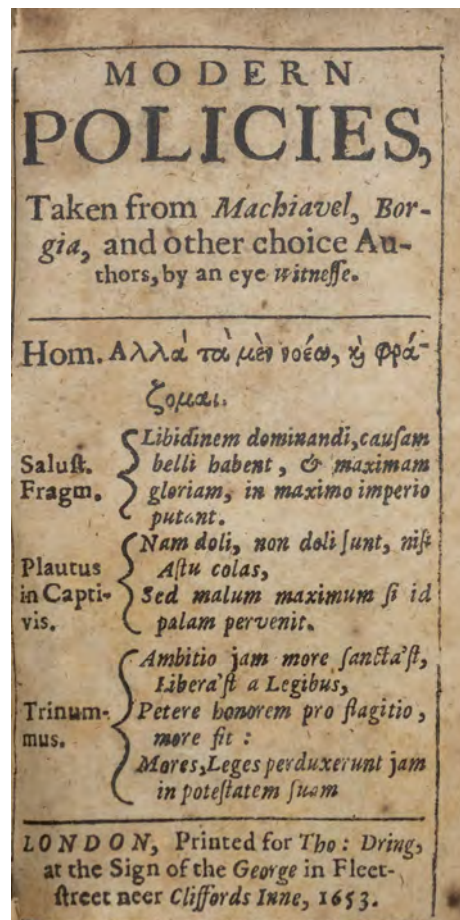 MODERN
POLICIES,
Taken from Machiavel, Bor-
gia, and other choice Au-
thors, by an eye witneſſe.
Hom. Αλλὰ τὰ μὲν νοέω, ϗ φρά-
ζομαι.
Libidinem dominandi, cauſam
Saluſt. belli habent, & maximam
Fragm. gloriam, in maximo imperio
putant.
Nam doli, non doli ſunt, niſi
Plautus Aſtu colas,
in Capti- Sed malum maximum ſi id
vis. palam pervenit.
Ambitio jam more ſancta'ſt,
Libera'ſt a Legibus,
Trinum- Petere honorem pro flagitio,
mus. more fit :
Mores, Leges perduxerunt jam
in poteſtatem ſuam
LONDON, Printed for Tho: Dring,
at the Sign of the George in Fleet-
ſtreet neer Cliffords Inne, 1653.